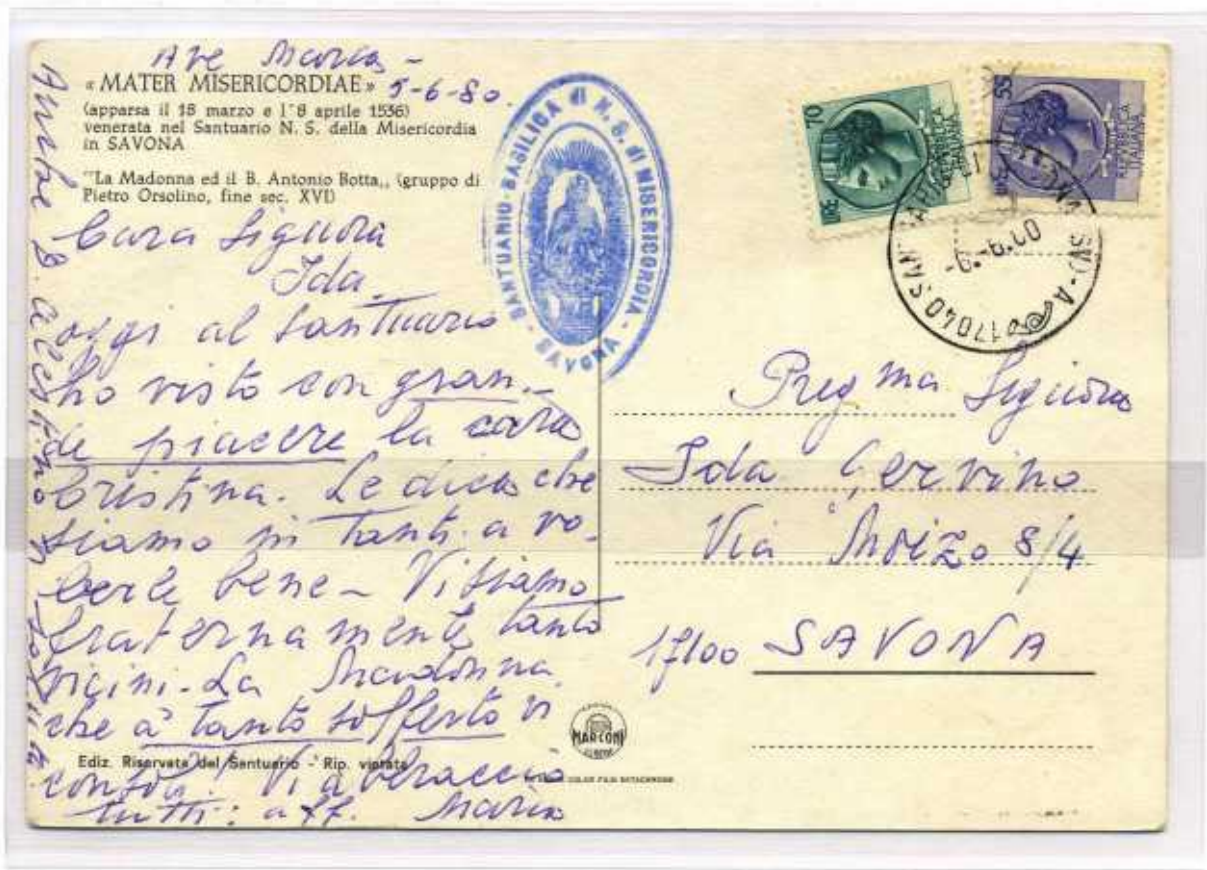 Ave Maria -
«MATER MISERICORDIAE» 5-6-80.
(apparsa il 18 marzo e l'8 aprile 1536)
venerata nel Santuario N. S. della Misericordia
in SAVONA
"La Madonna ed il B. Antonio Botta,, (gruppo di
Pietro Orsolino, fine sec. XVI)
Cara Signora
Ida
oggi al Santuario
ho visto con gran-
de piacere la cara
Cristina. Le dico che
siamo in tanti a vo-
lerle bene - Vi siamo
fraternamente tanto
vicini - La Madonna
che à tanto sofferto vi
consoli! Vi abbraccio
tutti: aff. Maria
Anche B.
Ediz. Riservata del Santuario - Rip. vietata
SANTUARIO - BASILICA di N. S. di MISERICORDIA - SAVONA -
LIRE 70
REPUBBLICA ITALIANA
LIRE 55
REPUBBLICA ITALIANA
17040 SANT
(SV) - A
Preg ma Signora
Ida Gervino
Via 8/4
17100 SAVONA
MARCONI